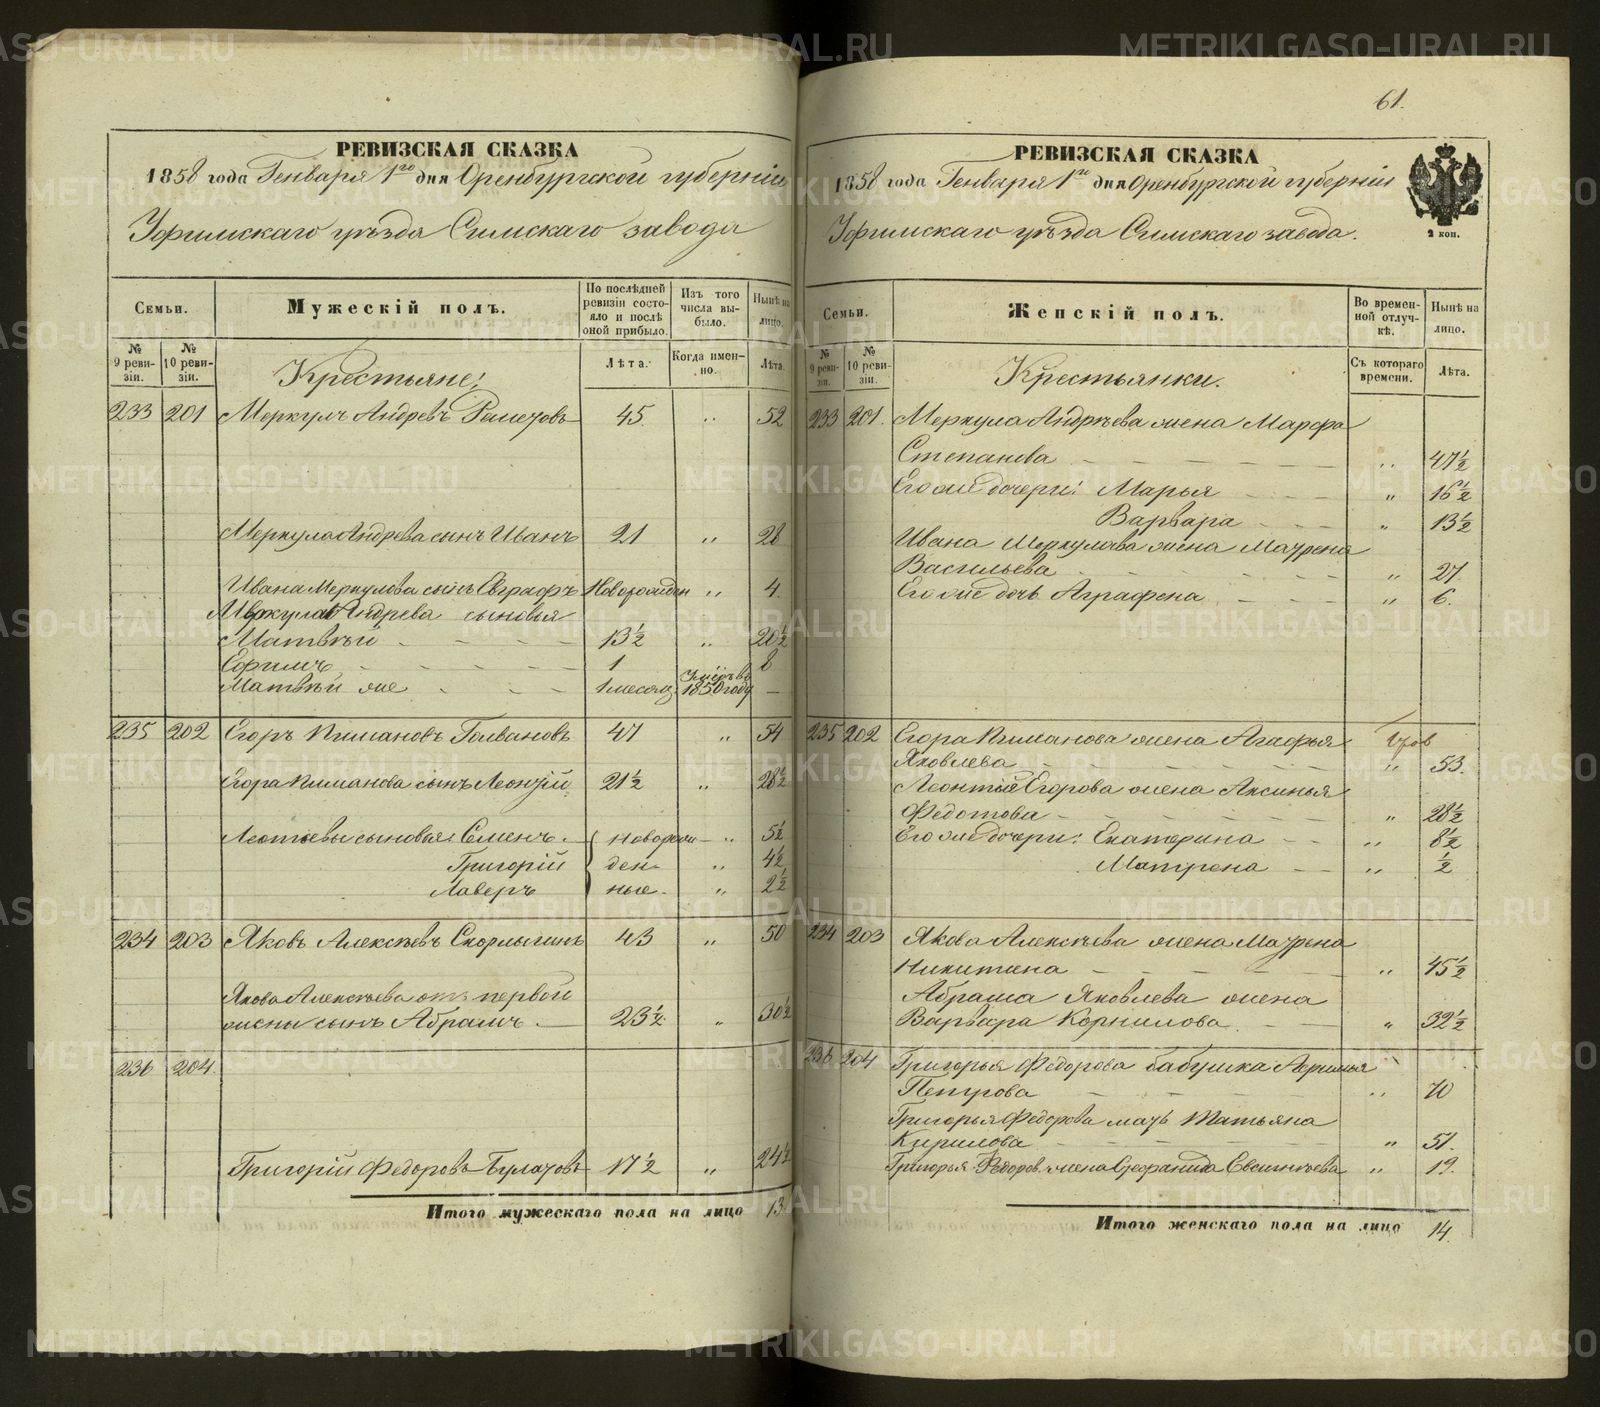 61.
РЕВИЗСКАЯ СКАЗКА
1858 года Генваря 1го дня Оренбургской губерніи
Уфимскаго уѣзда Симскаго завода
Семьи.
Мужескій полъ.
По послѣдней ревизіи состояло и послѣ оной прибыло.
Изъ того числа выбыло.
Нынѣ на лицо.
№ 9 ревизіи.
№ 10 ревизіи.
Крестьяне:
Лѣта.
Когда именно.
Лѣта.
233 201 Меркулъ Андревъ 45 „ 52
Меркула Андрева сынъ Иванъ 21 „ 28
Ивана Меркулова сынъ Евграфъ Новорожден „ 4
Меркула Андрева сыновья
Матвѣй 13½ „ 20½
Ефимъ 1 8
Матвѣй же 1 месяц. Умеръ въ 1850 году —
235 202 Егоръ Пимановъ Голвановъ 47 „ 54
Егора Пиманова сынъ Леонтій 21½ „ 28½
Леотьевы сыновья: Семенъ новорожденные „ 5½
Григорій „ 4½
Лаверъ „ 2½
234 203 Яковъ Алексѣевъ Скорлыгинъ 43 „ 50
Якова Алексѣева отъ первой
жены сынъ Абрамъ 23½ „ 30½
236 204
Григорій Федоровъ Булатовъ 17½ „ 24½
Итого мужескаго пола на лицо 13
РЕВИЗСКАЯ СКАЗКА
1858 года Генваря 1го дня Оренбургской губерніи
Уфимскаго уѣзда Симскаго завода.
2 коп.
Семьи.
Женскій полъ.
Во временной отлучкѣ.
Нынѣ на лицо.
№ 9 ревизіи.
№ 10 ревизіи.
Крестьянки.
Съ котораго времени.
Лѣта.
233 201. Меркула Андрѣева жена Марфа
Степанова „ 47½
Его же дочери: Марья „ 16½
Варвара „ 13½
Ивана Меркулова жена Маурена
Васильева „ 27
Его же дочь Аграфена „ 6.
235 202 Егора Пиманова жена Агафья
Яковлева „ 53.
Леонтія Егорова жена Аксинья
Федотова „ 28½
Его же дочери: Екатерина „ 8½
Матрена „ ½
234 203 Якова Алексѣева жена Маурена
Никитина „ 45½
Абрама Яковлева жена
Варвара Корнилова „ 32½
236 204 Григорья Федорова бабушка
Петрова „ 70
Григорья Федорова мать Татьяна
Кирилова „ 51.
Григорья Федоров. жена Стефанида Евсигнѣева „ 19.
Итого женскаго пола на лицо 14.
METRIKI.GASO-URAL.RU